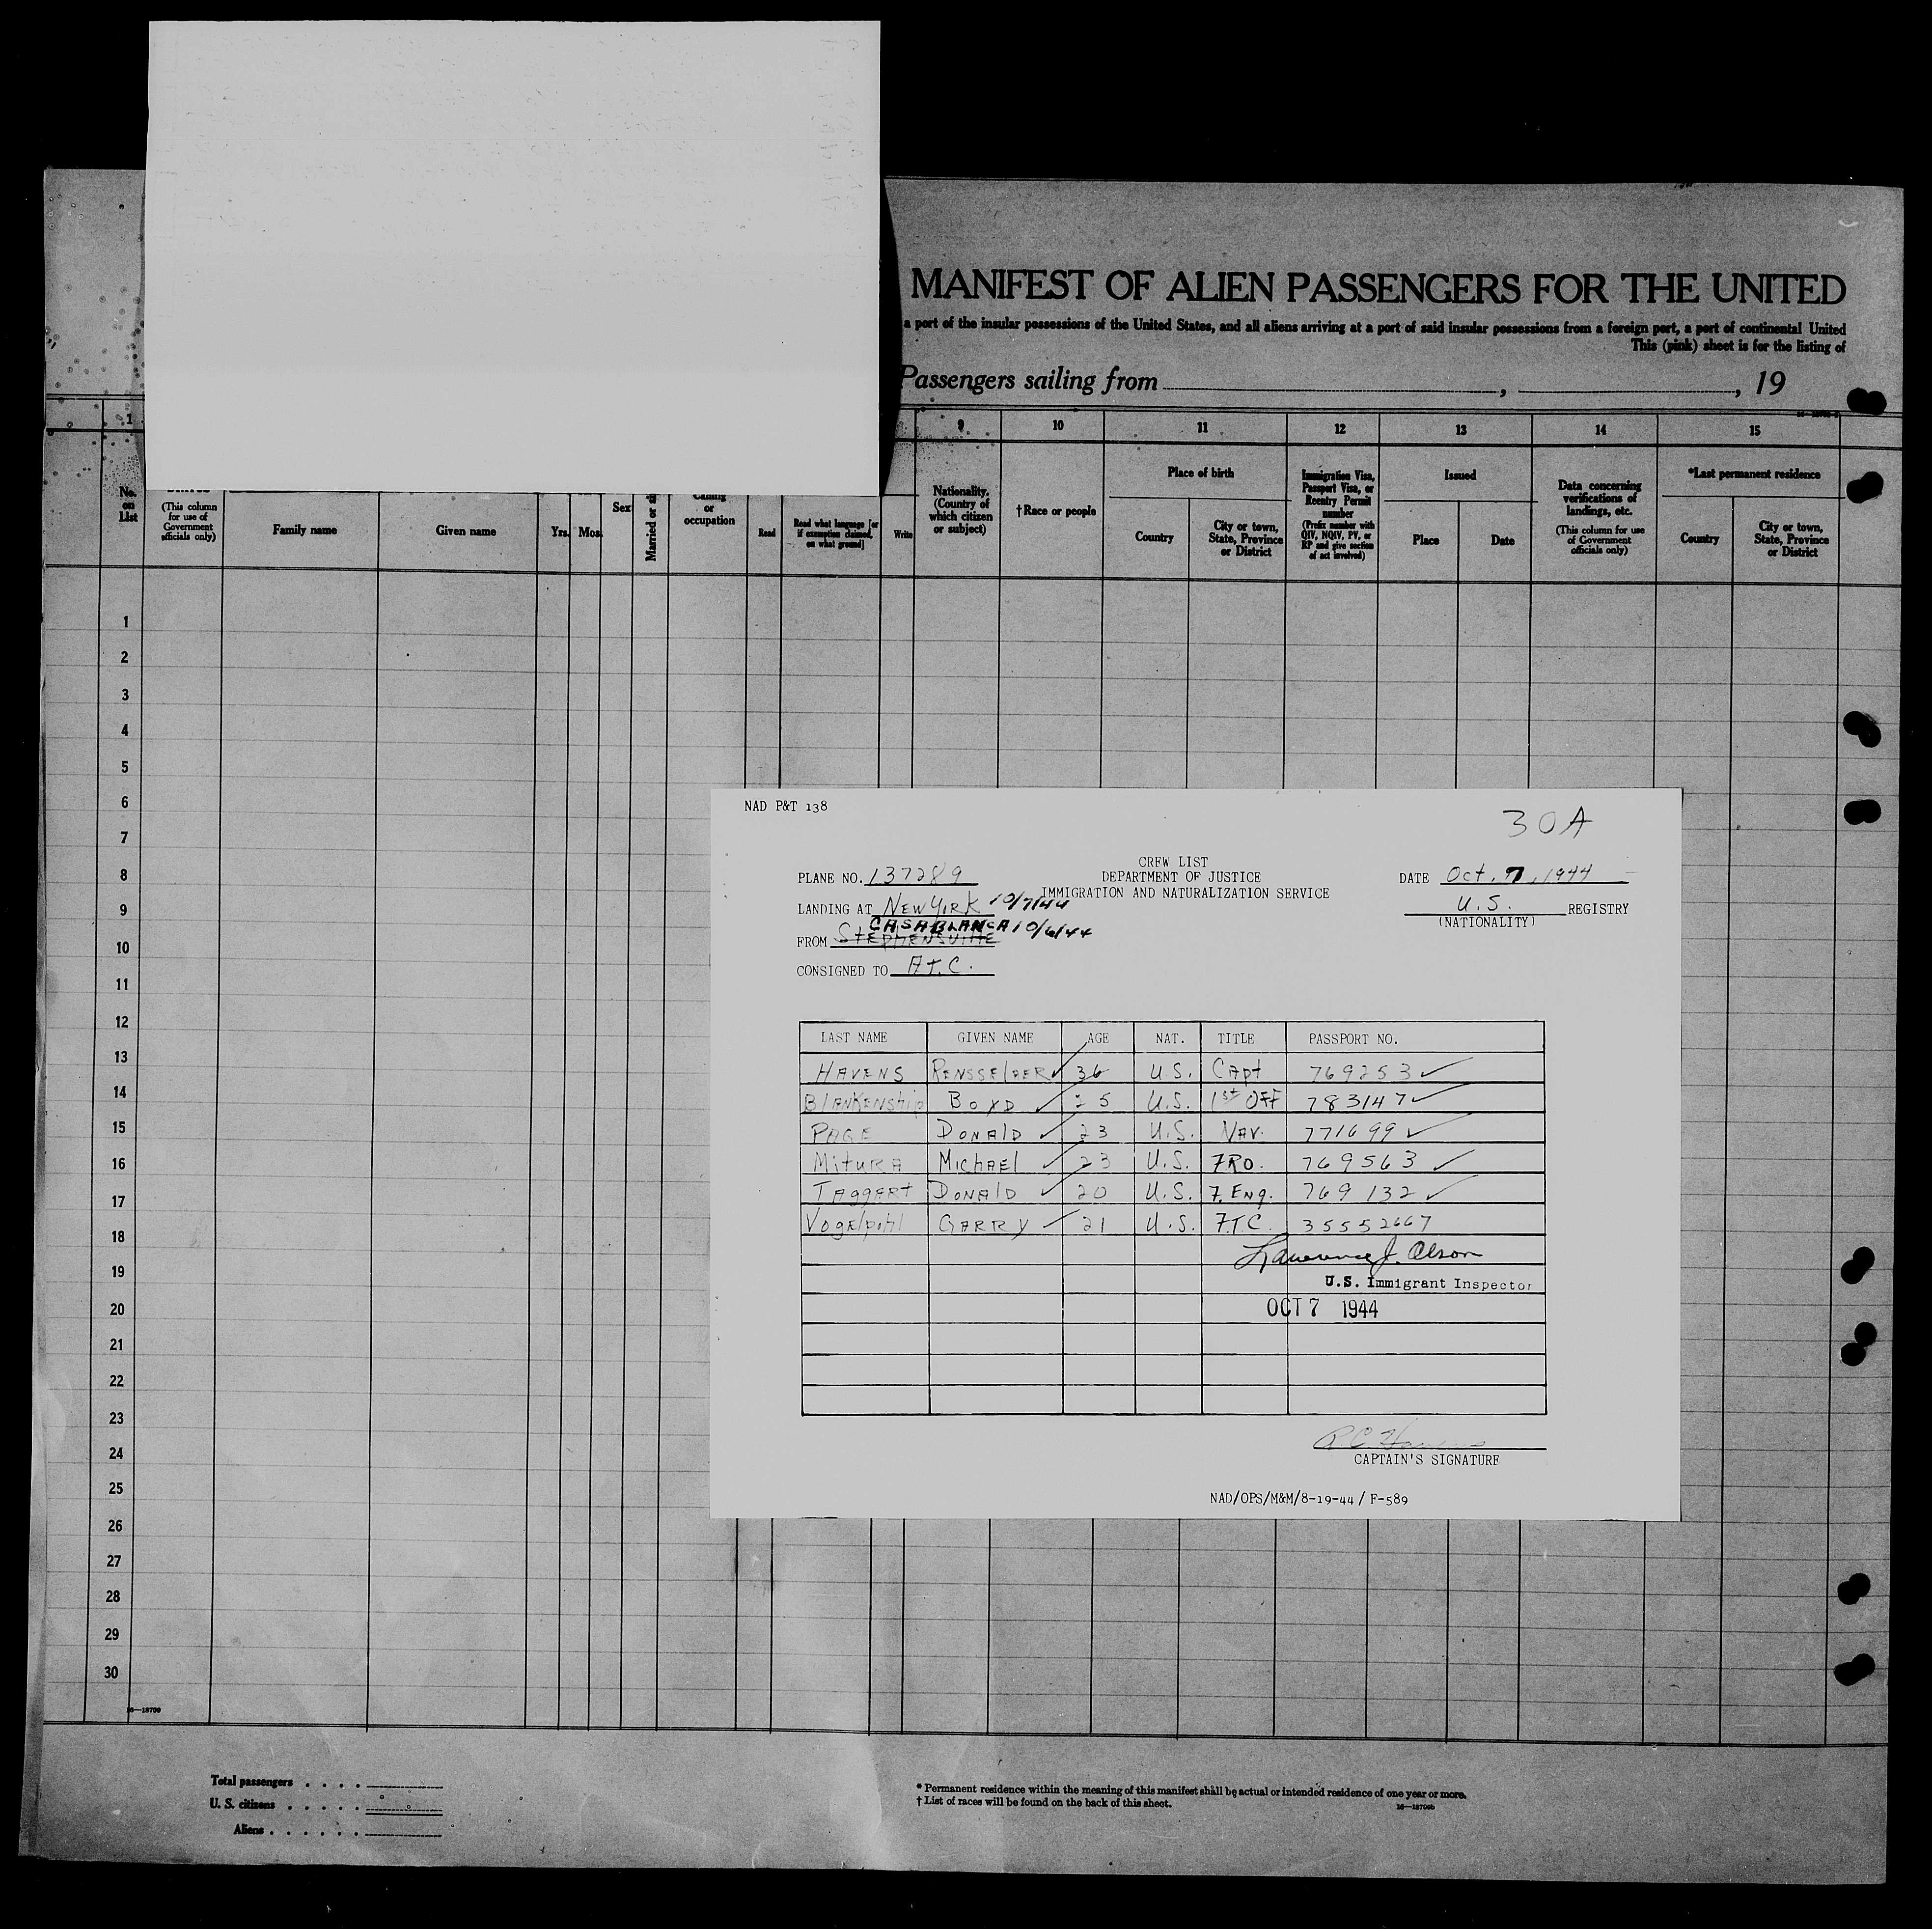 MANIFEST OF ALIEN PASSENGERS FOR THE UNITED
a port of the insular possessions of the United States, and all aliens arriving at a port of said insular possessions from a foreign port, a port of continental United
This (pink) sheet is for the listing of
Passengers sailing from , , 19
1 9 10 11 12 13 14 15
No. on List
(This column for use of Government officials only)
Family name
Given name
Yrs. Mos.
Sex
Married or
Calling or occupation
Read
Read what language [or if exemption claimed, on what ground]
Write
Nationality. (Country of which citizen or subject)
†Race or people
Place of birth
Country
City or town, State, Province or District
Immigration Visa, Passport Visa, or Reentry Permit number
(Prefix number with QIV, NQIV, PV, or RP and give section of act involved)
Issued
Place
Date
Data concerning verifications of landings, etc.
(This column for use of Government officials only)
*Last permanent residence
Country
City or town, State, Province or District
1
2
3
4
5
6
7
8
9
10
11
12
13
14
15
16
17
18
19
20
21
22
23
24
25
26
27
28
29
30
NAD P&T 138
30A
CREW LIST
PLANE NO. 137289 DEPARTMENT OF JUSTICE DATE Oct. 7, 1944
IMMIGRATION AND NATURALIZATION SERVICE
LANDING AT NEW YORK 10/7/44 U.S. REGISTRY
(NATIONALITY)
CASABLANCA 10/6/44
FROM Stephensville
CONSIGNED TO A.T.C.
LAST NAME GIVEN NAME AGE NAT. TITLE PASSPORT NO.
HAVENS RENSSElAER 36 U.S. CApt 769253
BlANKENship BOYD 25 U.S. 1st OFF 783147
PAGE DONAlD 23 U.S. NAV. 771699
MituRA MIChAEl 23 U.S. FRO. 769563
TAGGARt DONAlD 20 U.S. F. Eng. 769132
Vogelpohl GARRY 21 U.S. F.T.C. 35552667
Lawrence J. Olson
U.S. Immigrant Inspector
OCT 7 1944
R C Havens
CAPTAIN'S SIGNATURE
NAD/OPS/M&M/8-19-44/ F-589
16—18709
Total passengers . . . .
U. S. citizens . . . . .
Aliens . . . . . .
* Permanent residence within the meaning of this manifest shall be actual or intended residence of one year or more.
† List of races will be found on the back of this sheet.